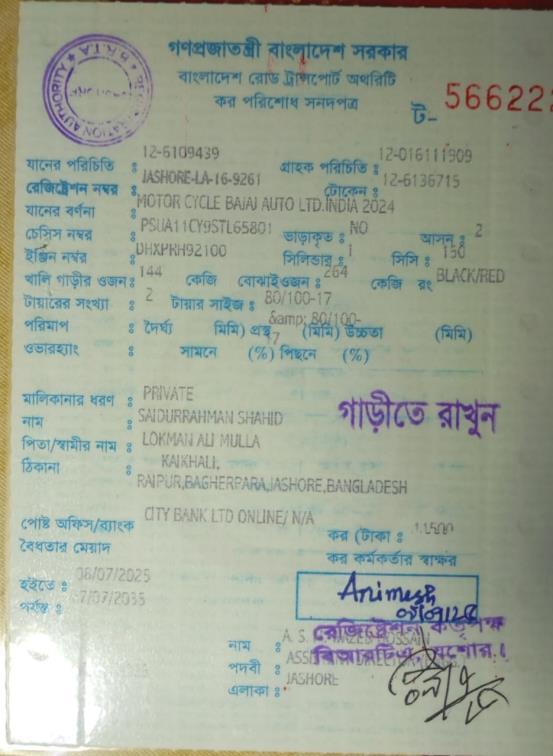 গণপ্রজাতন্ত্রী বাংলাদেশ সরকার
বাংলাদেশ রোড ট্রান্সপোর্ট অথরিটি
কর পরিশোধ সনদপত্র
ট- 566222
যানের পরিচিতি : 12-6109439 গ্রাহক পরিচিতি : 12-016111909
রেজিষ্ট্রেশন নম্বর : JASHORE-LA-16-9261 টোকেন : 12-6136715
যানের বর্ণনা : MOTOR CYCLE BAJAJ AUTO LTD.INDIA 2024
চেসিস নম্বর : PSUA11CY9STL65801 ভাড়াকৃত : NO আসন : 2
ইঞ্জিন নম্বর : DHXPRH92100 সিলিন্ডার : 1 সিসি : 150
খালি গাড়ীর ওজন : 144 কেজি বোঝাইওজন : 264 কেজি রং BLACK/RED
টায়ারের সংখ্যা : 2 টায়ার সাইজ : 80/100-17
&amp; 80/100-
পরিমাপ : দৈর্ঘ্য মিমি) প্রস্থ 17 (মিমি) উচ্চতা (মিমি)
ওভারহ্যাং : সামনে (%) পিছনে (%)
মালিকানার ধরণ : PRIVATE
গাড়ীতে রাখুন
নাম : SAIDURRAHMAN SHAHID
পিতা/স্বামীর নাম : LOKMAN ALI MULLA
ঠিকানা : KAIKHALI,
RAIPUR,BAGHERPARA,JASHORE,BANGLADESH
পোষ্ট অফিস/ব্যাংক : CITY BANK LTD ONLINE/ N/A
কর (টাকা :
বৈধতার মেয়াদ
কর কর্মকর্তার স্বাক্ষর
হইতে : 08/07/2025
পর্যন্ত : 7/07/2035
Animesh
নাম : A. S.
রেজিষ্ট্রেশন কর্তৃপক্ষ
বিআরটিএ, যশোর।
পদবী :
এলাকা : JASHORE